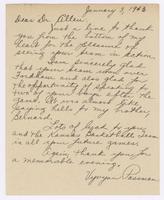 January 3, 1953
Dear Dr. Allen:
Just a line to thank
you from the bottom of my
heart for the pleasure of
seeing your team in action.
I am sincerely glad
that your team won over
Fordham and also glad for
the opportunity of speaking to
you by the bench after the
game. It was almost like
saying hello to my brother,
Bernard.
Lots of luck to you
and the Kansas Basketball Team
in all your future games.
Again thank you for
a memorable evening.